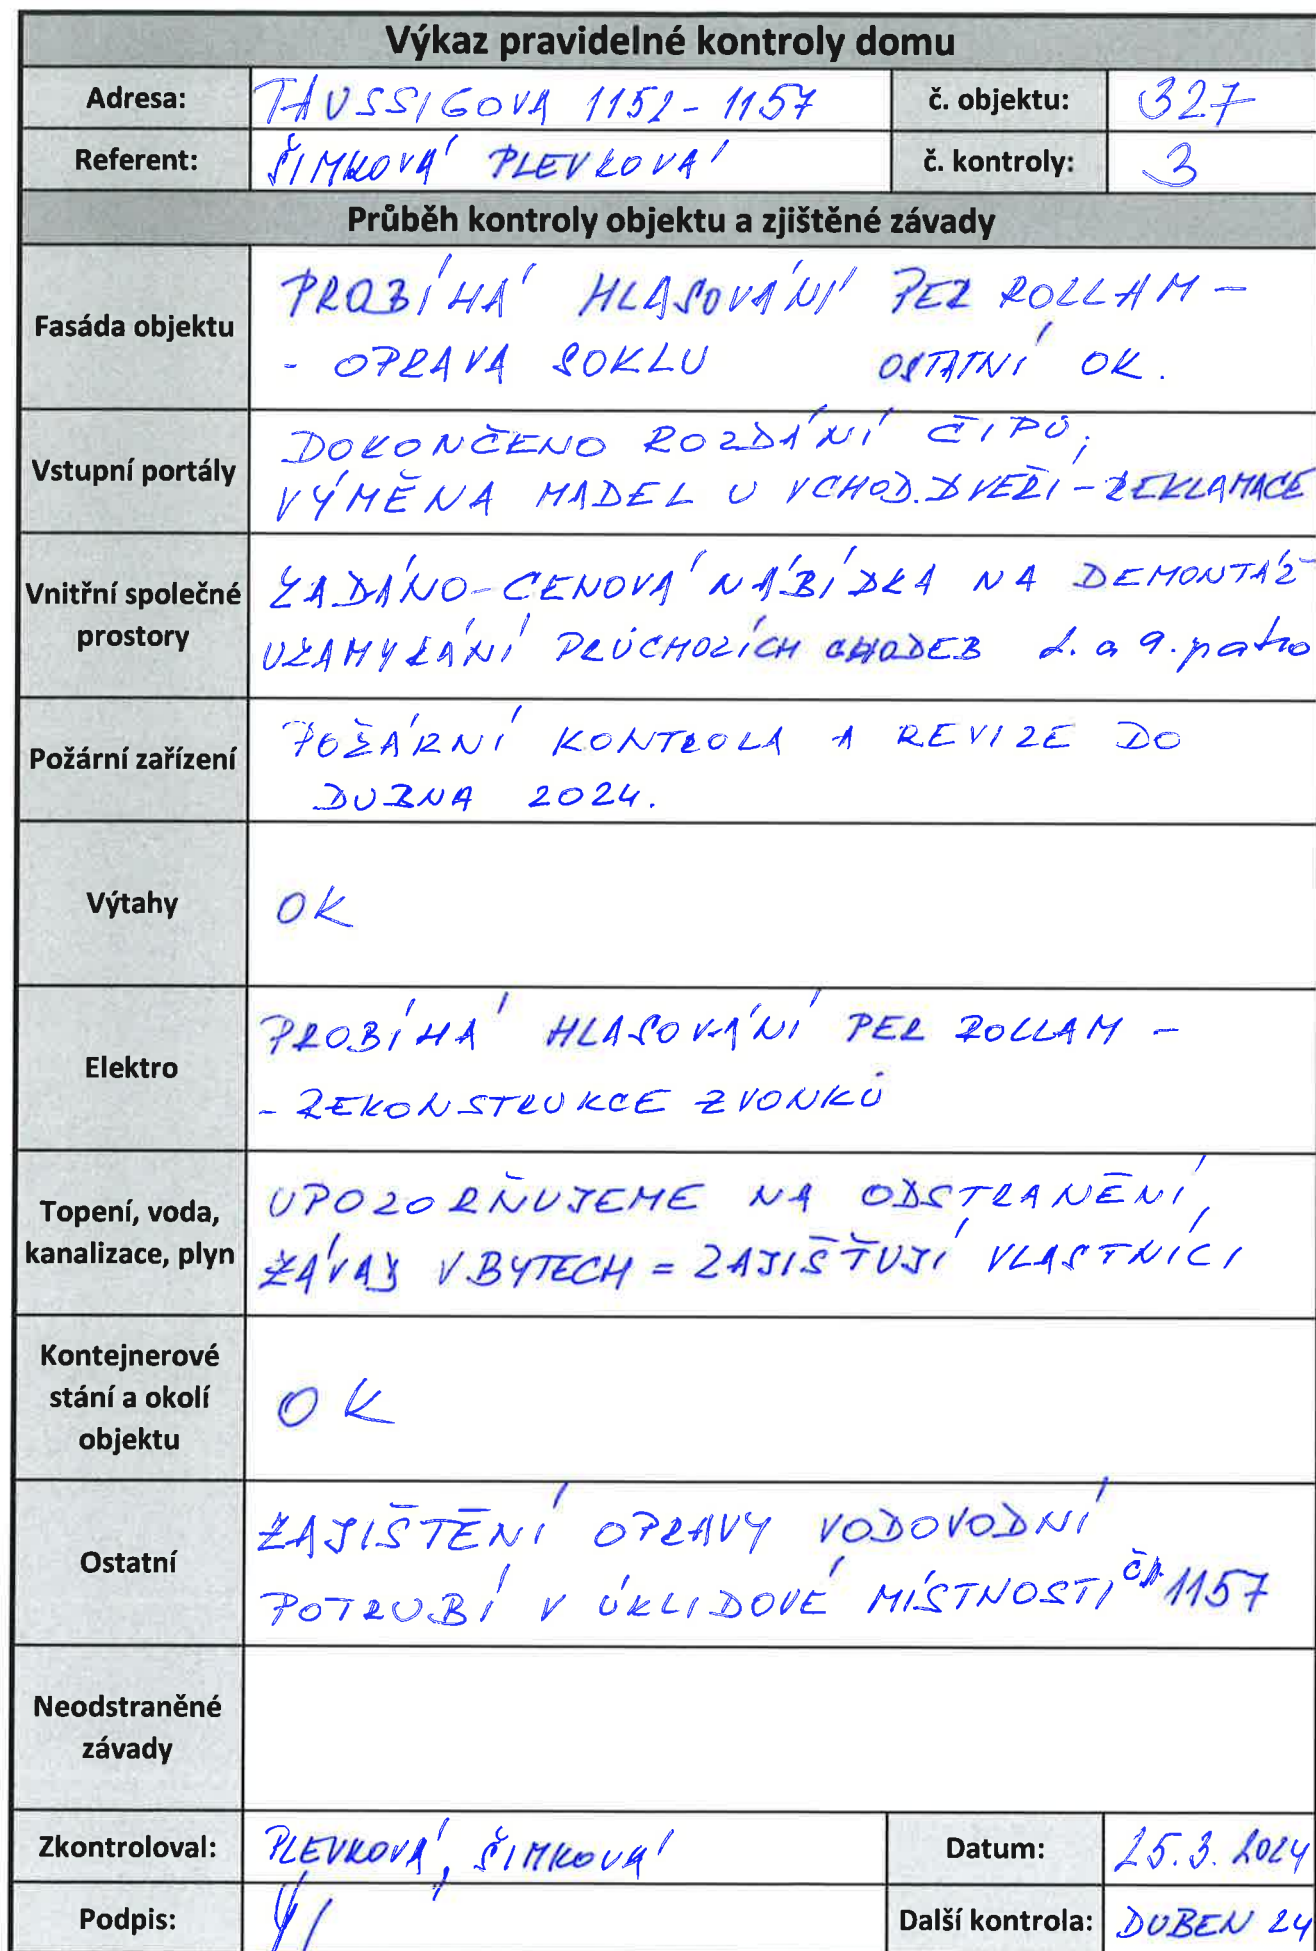 Výkaz pravidelné kontroly domu
Adresa: TAUSSIGOVA 1152-1157 č. objektu: 327
Referent: ŠIMKOVÁ PLEVKOVÁ č. kontroly: 3
Průběh kontroly objektu a zjištěné závady
Fasáda objektu
PROBÍHÁ HLASOVÁNÍ PER ROLLAM -
- OPRAVA SOKLU OSTATNÍ OK.
Vstupní portály
DOKONČENO ROZDÁNÍ ČIPŮ,
VÝMĚNA MADEL U VCHOD. DVEŘÍ - REKLAMACE
Vnitřní společné
prostory
ZADÁNO - CENOVÁ NABÍDKA NA DEMONTÁŽ
UZAMYKÁNÍ PRŮCHOZÍCH CHODEB 2. a 9. patro
Požární zařízení
POŽÁRNÍ KONTROLA A REVIZE DO
DUBNA 2024.
Výtahy
OK
Elektro
PROBÍHÁ HLASOVÁNÍ PER ROLLAM -
- REKONSTRUKCE ZVONKŮ
Topení, voda,
kanalizace, plyn
UPOZORŇUJEME NA ODSTRANĚNÍ
ZÁVAD V BYTECH = ZAJIŠŤUJÍ VLASTNÍCI
Kontejnerové
stání a okolí
objektu
OK
Ostatní
ZAJIŠTĚNÍ OPRAVY VODOVODNÍ
POTRUBÍ V ÚKLIDOVÉ MÍSTNOSTI 1157
Neodstraněné
závady
Zkontroloval: PLEVKOVÁ, ŠIMKOVÁ Datum: 25.3.2024
Podpis: Další kontrola: DUBEN 24